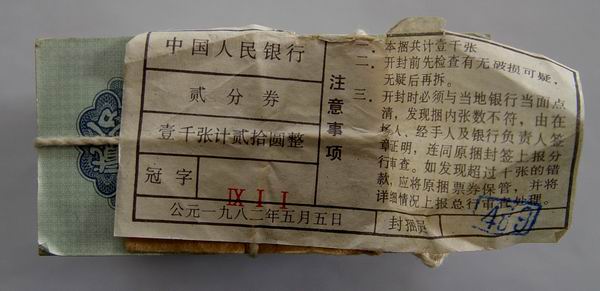 中国人民银行
贰分券
壹千张计贰拾圆整
冠字
IX I I
公元一九八二年五月五日
注意事项
一、本捆共计壹千张
二、开封前先检查有无破损可疑,
无疑后再拆。
三、开封时必须与当地银行当面点
清,发现捆内张数不符,由在
场人,经手人及银行负责人签
章证明,连同原捆封签上报分
行审查。如发现超过千张的错
款,应将原捆票券保管,并将
详细情况上报总行审查处理。
封捆员